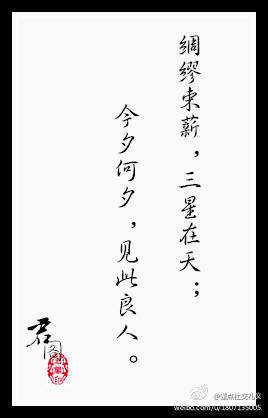 绸缪束薪，三星在天；
今夕何夕，见此良人。
君
@盟点社交礼仪
weibo.com/u/1807135005